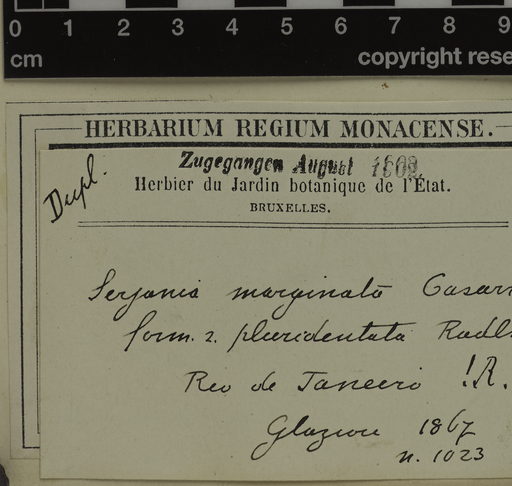 0 1 2 3 4 5 6 7 8 9
cm copyright rese
HERBARIUM REGIUM MONACENSE.
Zugegangen August
Dupl.
Herbier du Jardin botanique de l'État.
BRUXELLES.
Serjania marginata Casar
form. 2. pluridentata Radlk
Rio de Janeiro !R.
Glaziou 1867
n. 1023